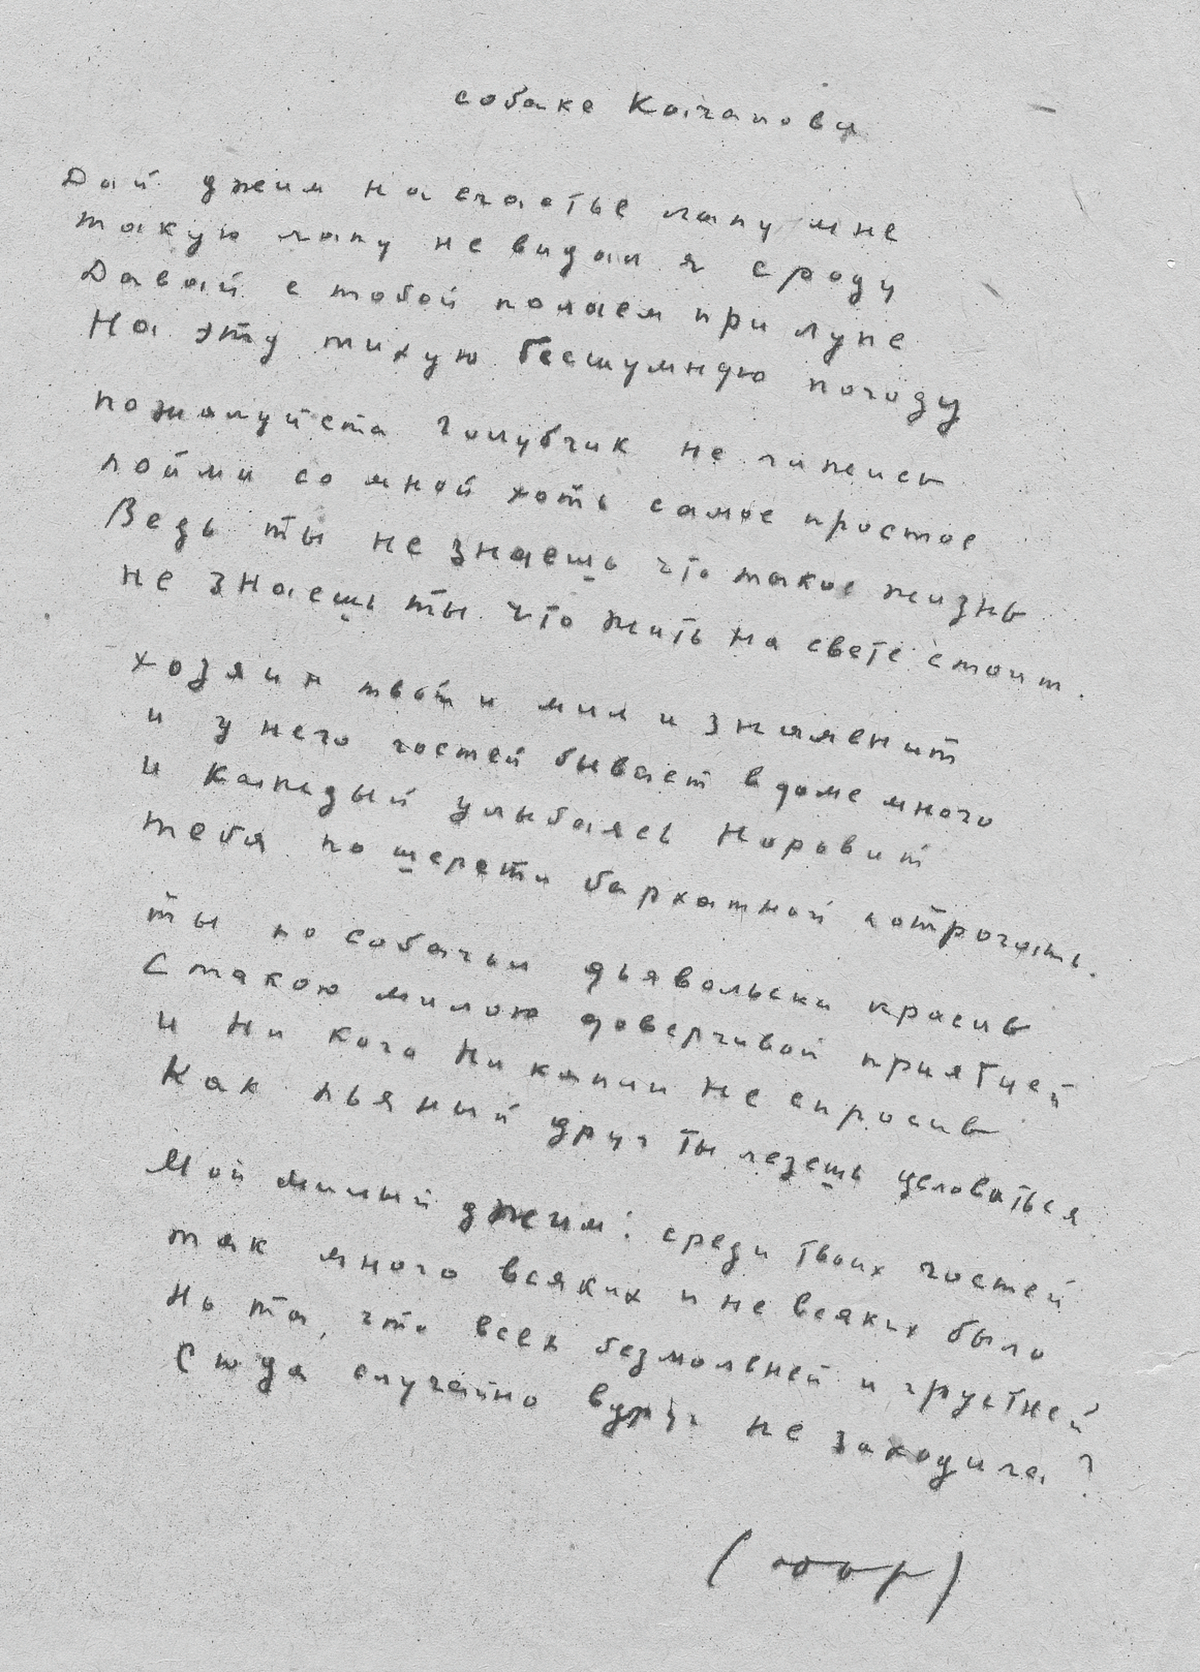 собаке Качалова
Дай джим на счастье лапу мне
такую лапу не видал я сроду
Давай с тобой полаем при луне
На эту тихую бесшумную погоду
пожалуйста голубчик не лижись
пойми со мной хоть самое простое
Ведь ты не знаешь что такое жизнь
не знаешь ты что жить на свете стоит.
хозяин твой и мил и знаменит
и у него гостей бывает в доме много
и каждый улыбаясь норовит
тебя по шерсти бархатной потрогать.
ты по собачьи дьявольски красив
С такою милою доверчивой приятцей
и ни кого ни капли не спросив
Как пьяный друг ты лезешь целоваться
Мой милый джим: среди твоих гостей
так много всяких и не всяких было
Но та, что всех безмолвней и грустней
Сюда случайно вдруг не заходила?